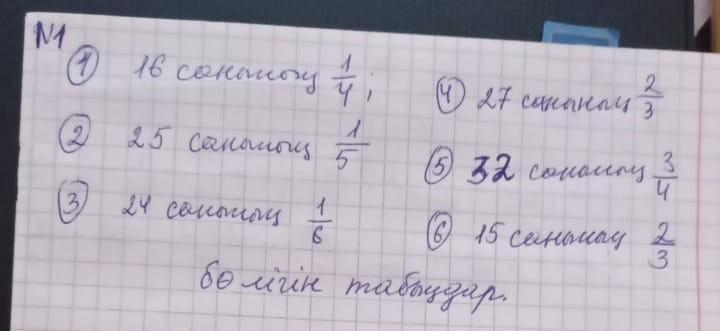 N1
① 16 санының 1/4;
② 25 санының 1/5
③ 24 санының 1/6
④ 27 санының 2/3
⑤ 32 санының 3/4
⑥ 15 санының 2/3
бөлігін табыңдар.